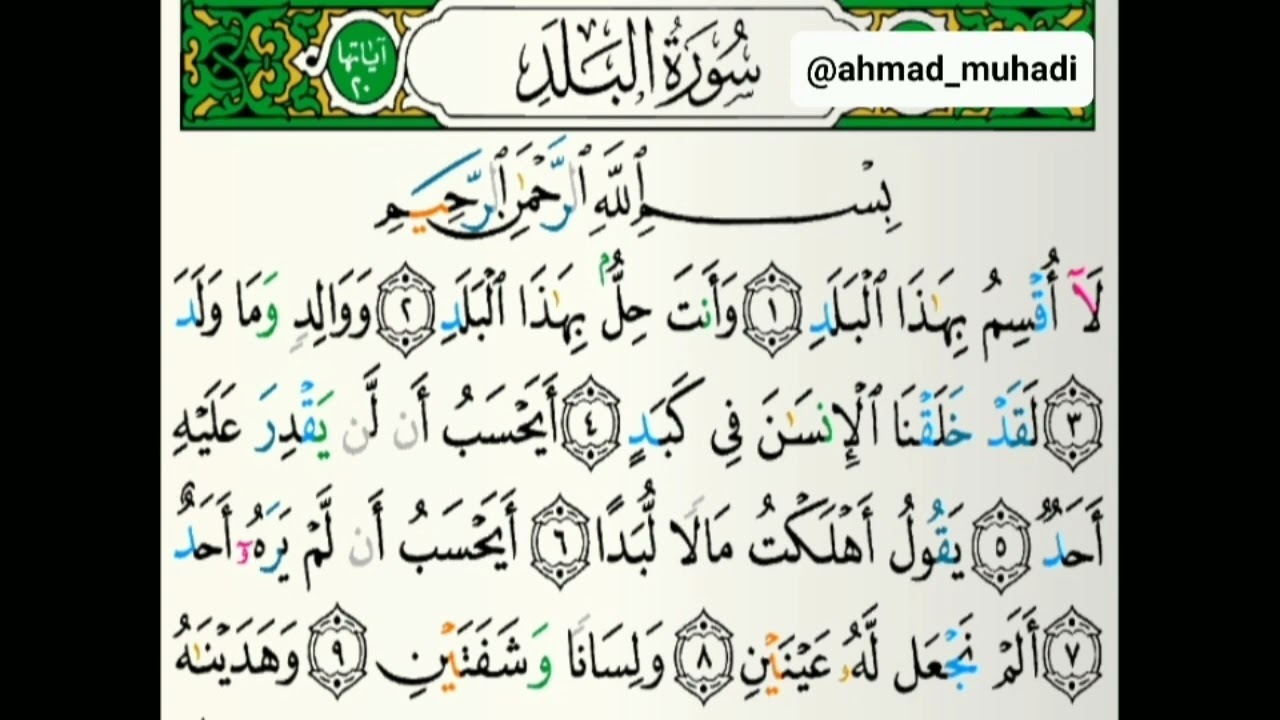 آياتها ٢٠
سُورَةُ البَلَدِ
@ahmad_muhadi
بِسْمِ ٱللَّهِ ٱلرَّحْمَٰنِ ٱلرَّحِيمِ
لَآ أُقْسِمُ بِهَٰذَا ٱلْبَلَدِ ١ وَأَنتَ حِلُّۢ بِهَٰذَا ٱلْبَلَدِ ٢ وَوَالِدٍ وَمَا وَلَدَ
٣ لَقَدْ خَلَقْنَا ٱلْإِنسَٰنَ فِى كَبَدٍ ٤ أَيَحْسَبُ أَن لَّن يَقْدِرَ عَلَيْهِ
أَحَدٌ ٥ يَقُولُ أَهْلَكْتُ مَالًا لُّبَدًا ٦ أَيَحْسَبُ أَن لَّمْ يَرَهُۥٓ أَحَدٌ
٧ أَلَمْ نَجْعَل لَّهُۥ عَيْنَيْنِ ٨ وَلِسَانًا وَشَفَتَيْنِ ٩ وَهَدَيْنَٰهُ